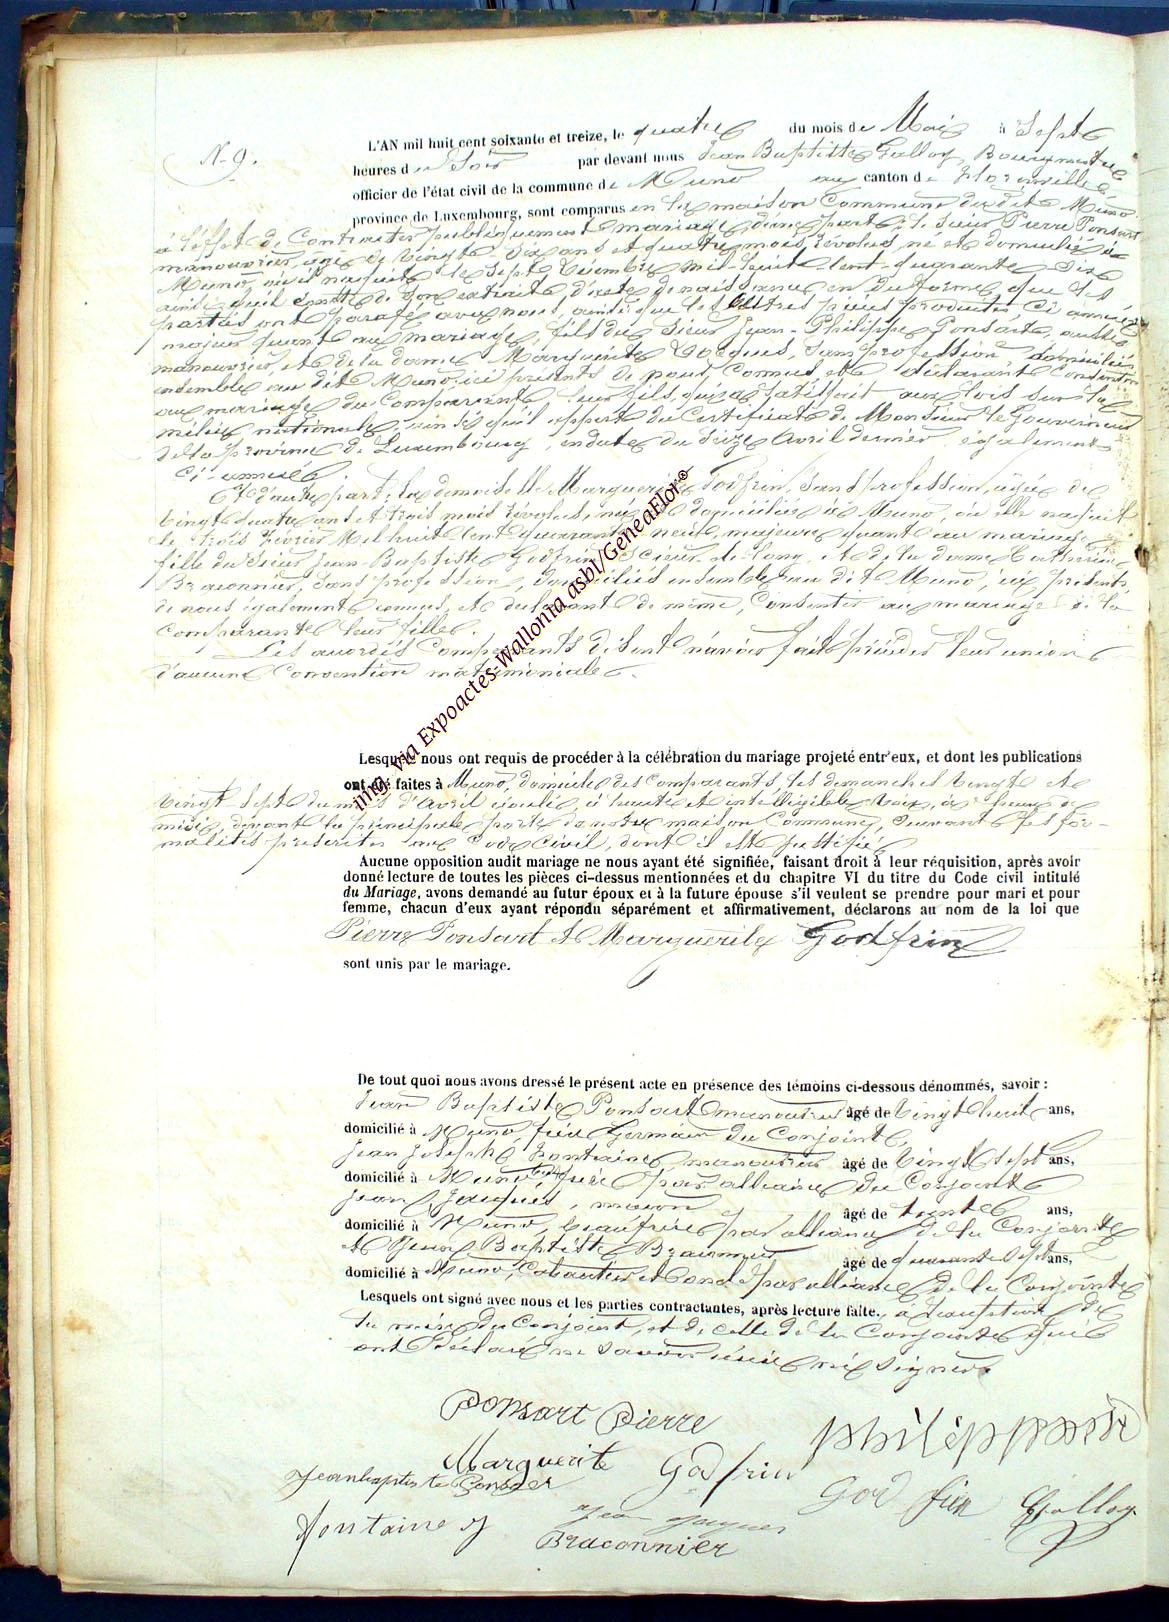 N° 9.
L'AN mil huit cent soixante et treize, le quatre du mois de Mai à Sept
heures du Soir par devant nous Jean Baptiste Galloy, Bourgmestre
officier de l'état civil de la commune de Muno au canton de Florenville
province de Luxembourg, sont comparus en la maison Commune dudit Muno
à l'effet de Contracter publiquement mariage, d'une part, le sieur Pierre Ponsart
manouvrier, agé de Vingt-Six ans et quatre mois révolus, né et domicilié à
Muno où il naquit le Sept Décembre mil-huit-cent-quarante-Six
ainsi qu'il conste de son extrait d'acte de naissance en due forme, que les
parties ont parafé avec nous, ainsi que les autres pièces produites, ci annexées
majeur quant au mariage, fils du Sieur Jean-Philippe Ponsart, aussi
manouvrier, et de la dame Marguerite Jacques, sans profession, domiciliés
ensemble au dit Muno, ici présents de nous connus et déclarant Consentir
au mariage du Comparant leur fils, qui a satisfait aux lois sur la
milice nationale, ainsi qu'il appert du Certificat de Monsieur le Gouverneur
de la province de Luxembourg, en date du Seize Avril dernier, également
ci-annexé.
Et d'autre part, la demoiselle Marguerite Godfrin, Sans profession, agée de
Vingt quatre ans et trois mois révolus, née et domiciliée à Muno, où elle naquit
le trois février Mil huit Cent quarante neuf, majeure quant au mariage
fille du Sieur Jean Baptiste Godfrin, Scieur-de-long, et de la dame Catherine
Braconnier, Sans profession, domiciliés ensemble au dit Muno, ici présents,
de nous également connus, et déclarant de même, Consentir au mariage de la
Comparante leur fille.
Les accordés Comparants disent n'avoir fait précéder leur union
d'aucune Convention matrimoniale.
img. via Expoactes-Wallonia asbl/GeneaFlor®
Lesquels nous ont requis de procéder à la célébration du mariage projeté entr'eux, et dont les publications
ont été faites à Muno, domicile des Comparants, les dimanches Vingt et
Vingt-Sept du mois d'Avril écoulé, à haute et intelligible voix, à heure de
midi, devant la principale porte de notre maison Commune, Suivant les for-
malités prescrites au Code Civil, dont il est justifié.
Aucune opposition audit mariage ne nous ayant été signifiée, faisant droit à leur réquisition, après avoir
donné lecture de toutes les pièces ci-dessus mentionnées et du chapitre VI du titre du Code civil intitulé
du Mariage, avons demandé au futur époux et à la future épouse s'il veulent se prendre pour mari et pour
femme, chacun d'eux ayant répondu séparément et affirmativement, déclarons au nom de la loi que
Pierre Ponsart et Marguerite Godfrin
sont unis par le mariage.
De tout quoi nous avons dressé le présent acte en présence des témoins ci-dessous dénommés, savoir :
Jean Baptiste Ponsart manouvrier âgé de Vingt huit ans,
domicilié à Muno, frère Germain du Conjoint,
Jean Joseph Fontaine, manouvrier âgé de Vingt Sept ans,
domicilié à Muno, frère par alliance du Conjoint
Jean Jacques, maçon âgé de trente ans,
domicilié à Muno, beaufrère par alliance de la Conjointe
et Jean Baptiste Braconnier âgé de quarante Sept ans,
domicilié à Muno, Cabaretier et Oncle par alliance de la Conjointe
Lesquels ont signé avec nous et les parties contractantes, après lecture faite, à l'exception de
la mère du Conjoint, et de celle de la Conjointe qui
ont Déclaré ne savoir écrire ni signer.
Ponsart Pierre
philipponsart
Marguerite Godfrin
Jeanbaptiste Ponsart
God frin Galloy
fontaine j
Jean Jacques
Braconnier